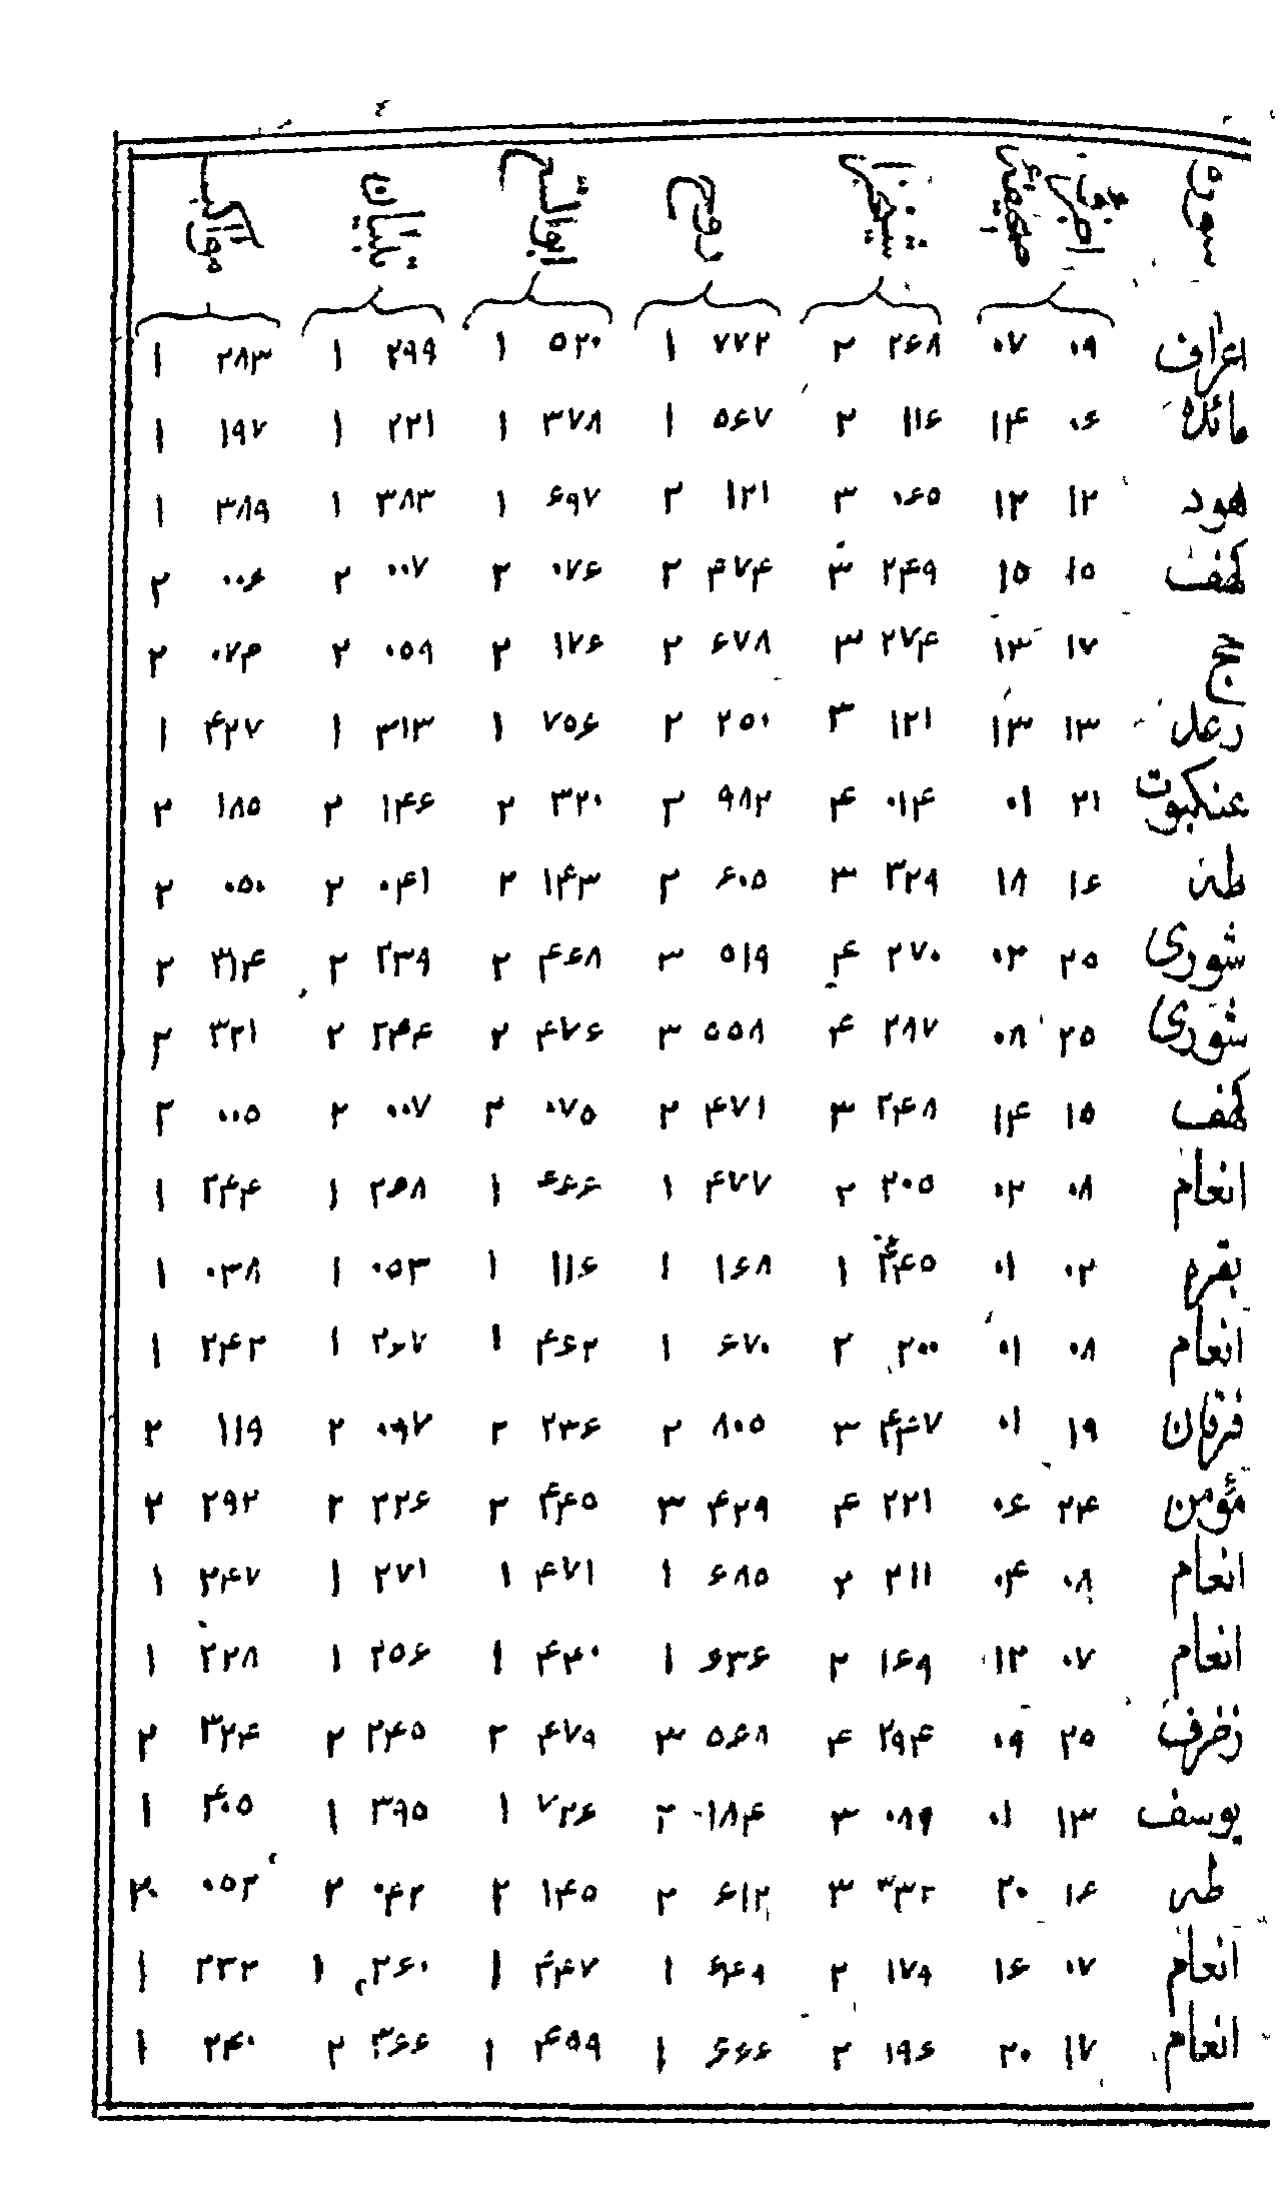 سوره اطرق صحیفه شیخزاده روح ابوالسعود تبیان مواکب
اعراف ۰۹ ۰۷ ۲۶۸ ۲ ۷۷۲ ۱ ۵۲۰ ۱ ۲۹۹ ۱ ۲۸۳ ۱
مائده ۰۶ ۱۴ ۱۱۶ ۲ ۵۶۷ ۱ ۳۷۸ ۱ ۲۲۱ ۱ ۱۹۷ ۱
هود ۱۲ ۱۲ ۰۶۵ ۳ ۱۲۱ ۲ ۶۹۷ ۱ ۳۸۳ ۱ ۳۸۹ ۱
کهف ۱۵ ۱۵ ۲۴۹ ۳ ۴۷۴ ۲ ۰۷۶ ۲ ۰۰۷ ۲ ۰۰۶ ۲
حج ۱۷ ۱۳ ۲۷۴ ۳ ۶۷۸ ۲ ۱۷۶ ۲ ۰۵۹ ۲ ۰۷۳ ۲
رعد ۱۳ ۱۳ ۱۲۱ ۳ ۲۵۰ ۲ ۷۵۶ ۱ ۳۱۳ ۱ ۴۲۷ ۱
عنکبوت ۲۱ ۰۱ ۰۱۴ ۴ ۹۸۲ ۲ ۳۲۰ ۲ ۱۴۶ ۲ ۱۸۵ ۲
طه ۱۶ ۱۸ ۳۲۹ ۳ ۶۰۵ ۲ ۱۴۳ ۲ ۰۴۱ ۲ ۰۵۰ ۲
شوری ۲۵ ۰۳ ۲۷۰ ۴ ۵۱۹ ۳ ۴۶۸ ۲ ۲۳۹ ۲ ۳۱۴ ۲
شوری ۲۵ ۰۸ ۲۸۷ ۴ ۵۵۸ ۳ ۴۷۶ ۲ ۲۴۴ ۲ ۳۲۱ ۲
کهف ۱۵ ۱۴ ۲۴۸ ۳ ۴۷۱ ۲ ۰۷۵ ۲ ۰۰۷ ۲ ۰۰۵ ۲
انعام ۰۸ ۰۲ ۲۰۵ ۲ ۴۷۷ ۱ ۴۶۶ ۱ ۲۶۸ ۱ ۲۴۴ ۱
بقره ۰۲ ۰۱ ۴۴۵ ۱ ۱۶۸ ۱ ۱۱۶ ۱ ۰۵۳ ۱ ۰۳۸ ۱
انعام ۰۸ ۰۱ ۲۰۰ ۲ ۶۷۰ ۱ ۴۶۲ ۱ ۲۶۷ ۱ ۲۴۲ ۱
فرقان ۱۹ ۰۱ ۴۴۷ ۳ ۸۰۵ ۲ ۲۳۶ ۲ ۰۹۷ ۲ ۱۱۹ ۲
مؤمن ۲۴ ۰۶ ۲۲۱ ۴ ۴۲۹ ۳ ۴۴۵ ۲ ۲۲۶ ۲ ۲۹۲ ۲
انعام ۰۸ ۰۴ ۲۱۱ ۲ ۶۸۵ ۱ ۴۷۱ ۱ ۲۷۱ ۱ ۲۴۷ ۱
انعام ۰۷ ۱۲ ۱۶۹ ۲ ۶۳۶ ۱ ۴۴۰ ۱ ۲۵۶ ۱ ۲۲۸ ۱
زخرف ۲۵ ۰۹ ۲۹۴ ۴ ۵۶۸ ۳ ۴۷۹ ۲ ۲۴۵ ۲ ۳۲۴ ۲
یوسف ۱۳ ۰۱ ۰۸۹ ۳ ۱۸۴ ۲ ۷۲۶ ۱ ۳۹۵ ۱ ۴۰۵ ۱
طه ۱۶ ۲۰ ۳۳۲ ۳ ۶۱۲ ۲ ۱۴۵ ۲ ۰۴۲ ۲ ۰۵۲ ۲
انعام ۰۷ ۱۶ ۱۷۹ ۲ ۶۴۹ ۱ ۴۴۷ ۱ ۲۶۰ ۱ ۲۳۲ ۱
انعام ۱۷ ۲۰ ۱۹۶ ۲ ۶۶۶ ۱ ۴۵۹ ۱ ۳۶۶ ۲ ۲۴۰ ۱